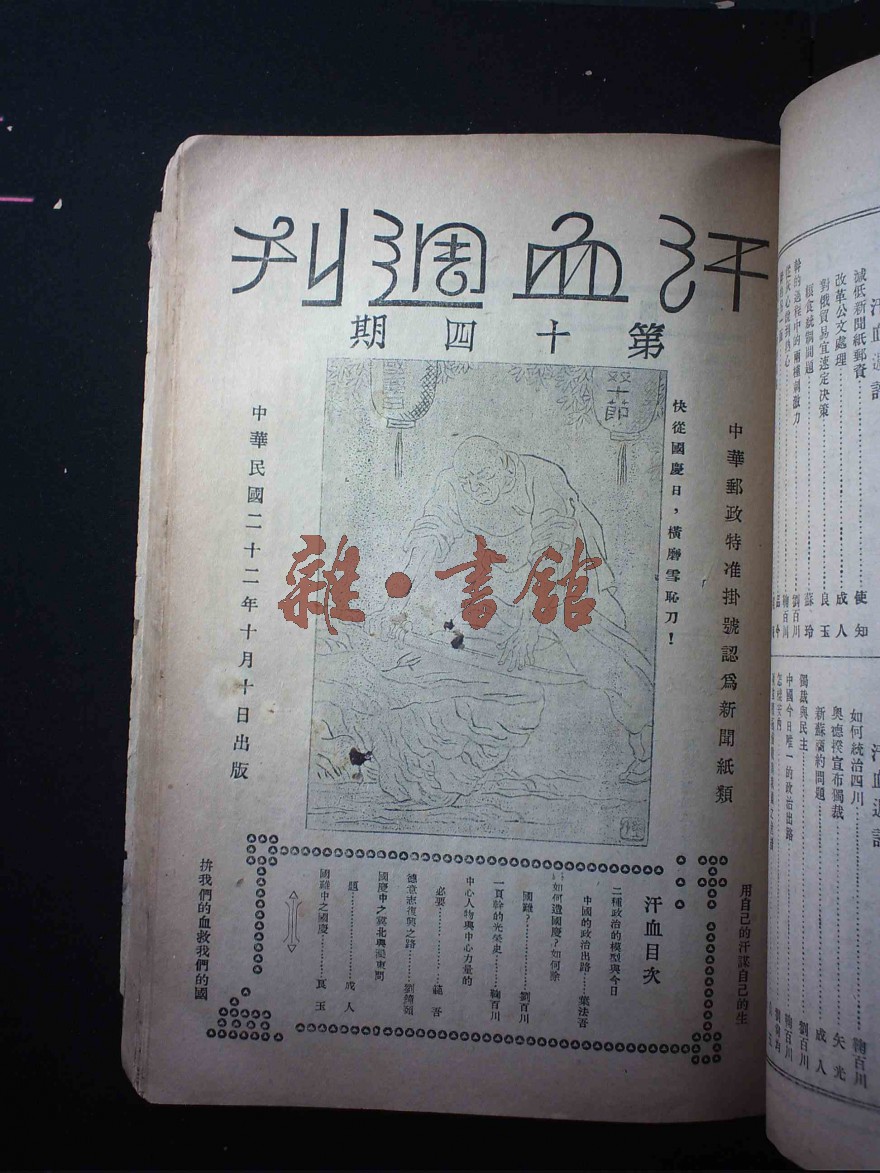 汗血週刊
第十四期
中華郵政特准掛號認爲新聞紙類
快從國慶日，橫磨雪恥刀！
双十節
國慶日
中華民國二十二年十月十日出版
雜·書館
用自己的汗謀自己的生
汗血目次
二種政治的模型與今日
中國的政治出路………葉法吾
如何造國慶？如何除
國難？………劉百川
一頁幹的光榮史………鞠百川
中心人物與中心力量的
必要………
德意志復興之路………
國慶中之冀北與灤東問
題………成人
國難中之國慶………良玉
拚我們的血救我們的國
減低新聞紙郵資………使知
改革公文處理………成人
對俄貿易宜速定決策………良玉
糧食統制問題………蘇玲
幹的過程中的兩種刺激力………劉百川
如何統治四川………鞠百川
奧德揆宣布獨裁………矢光
新蘇滿約問題………成人
獨裁與民主………劉百川
中國今日唯一的政治出路………鞠百川